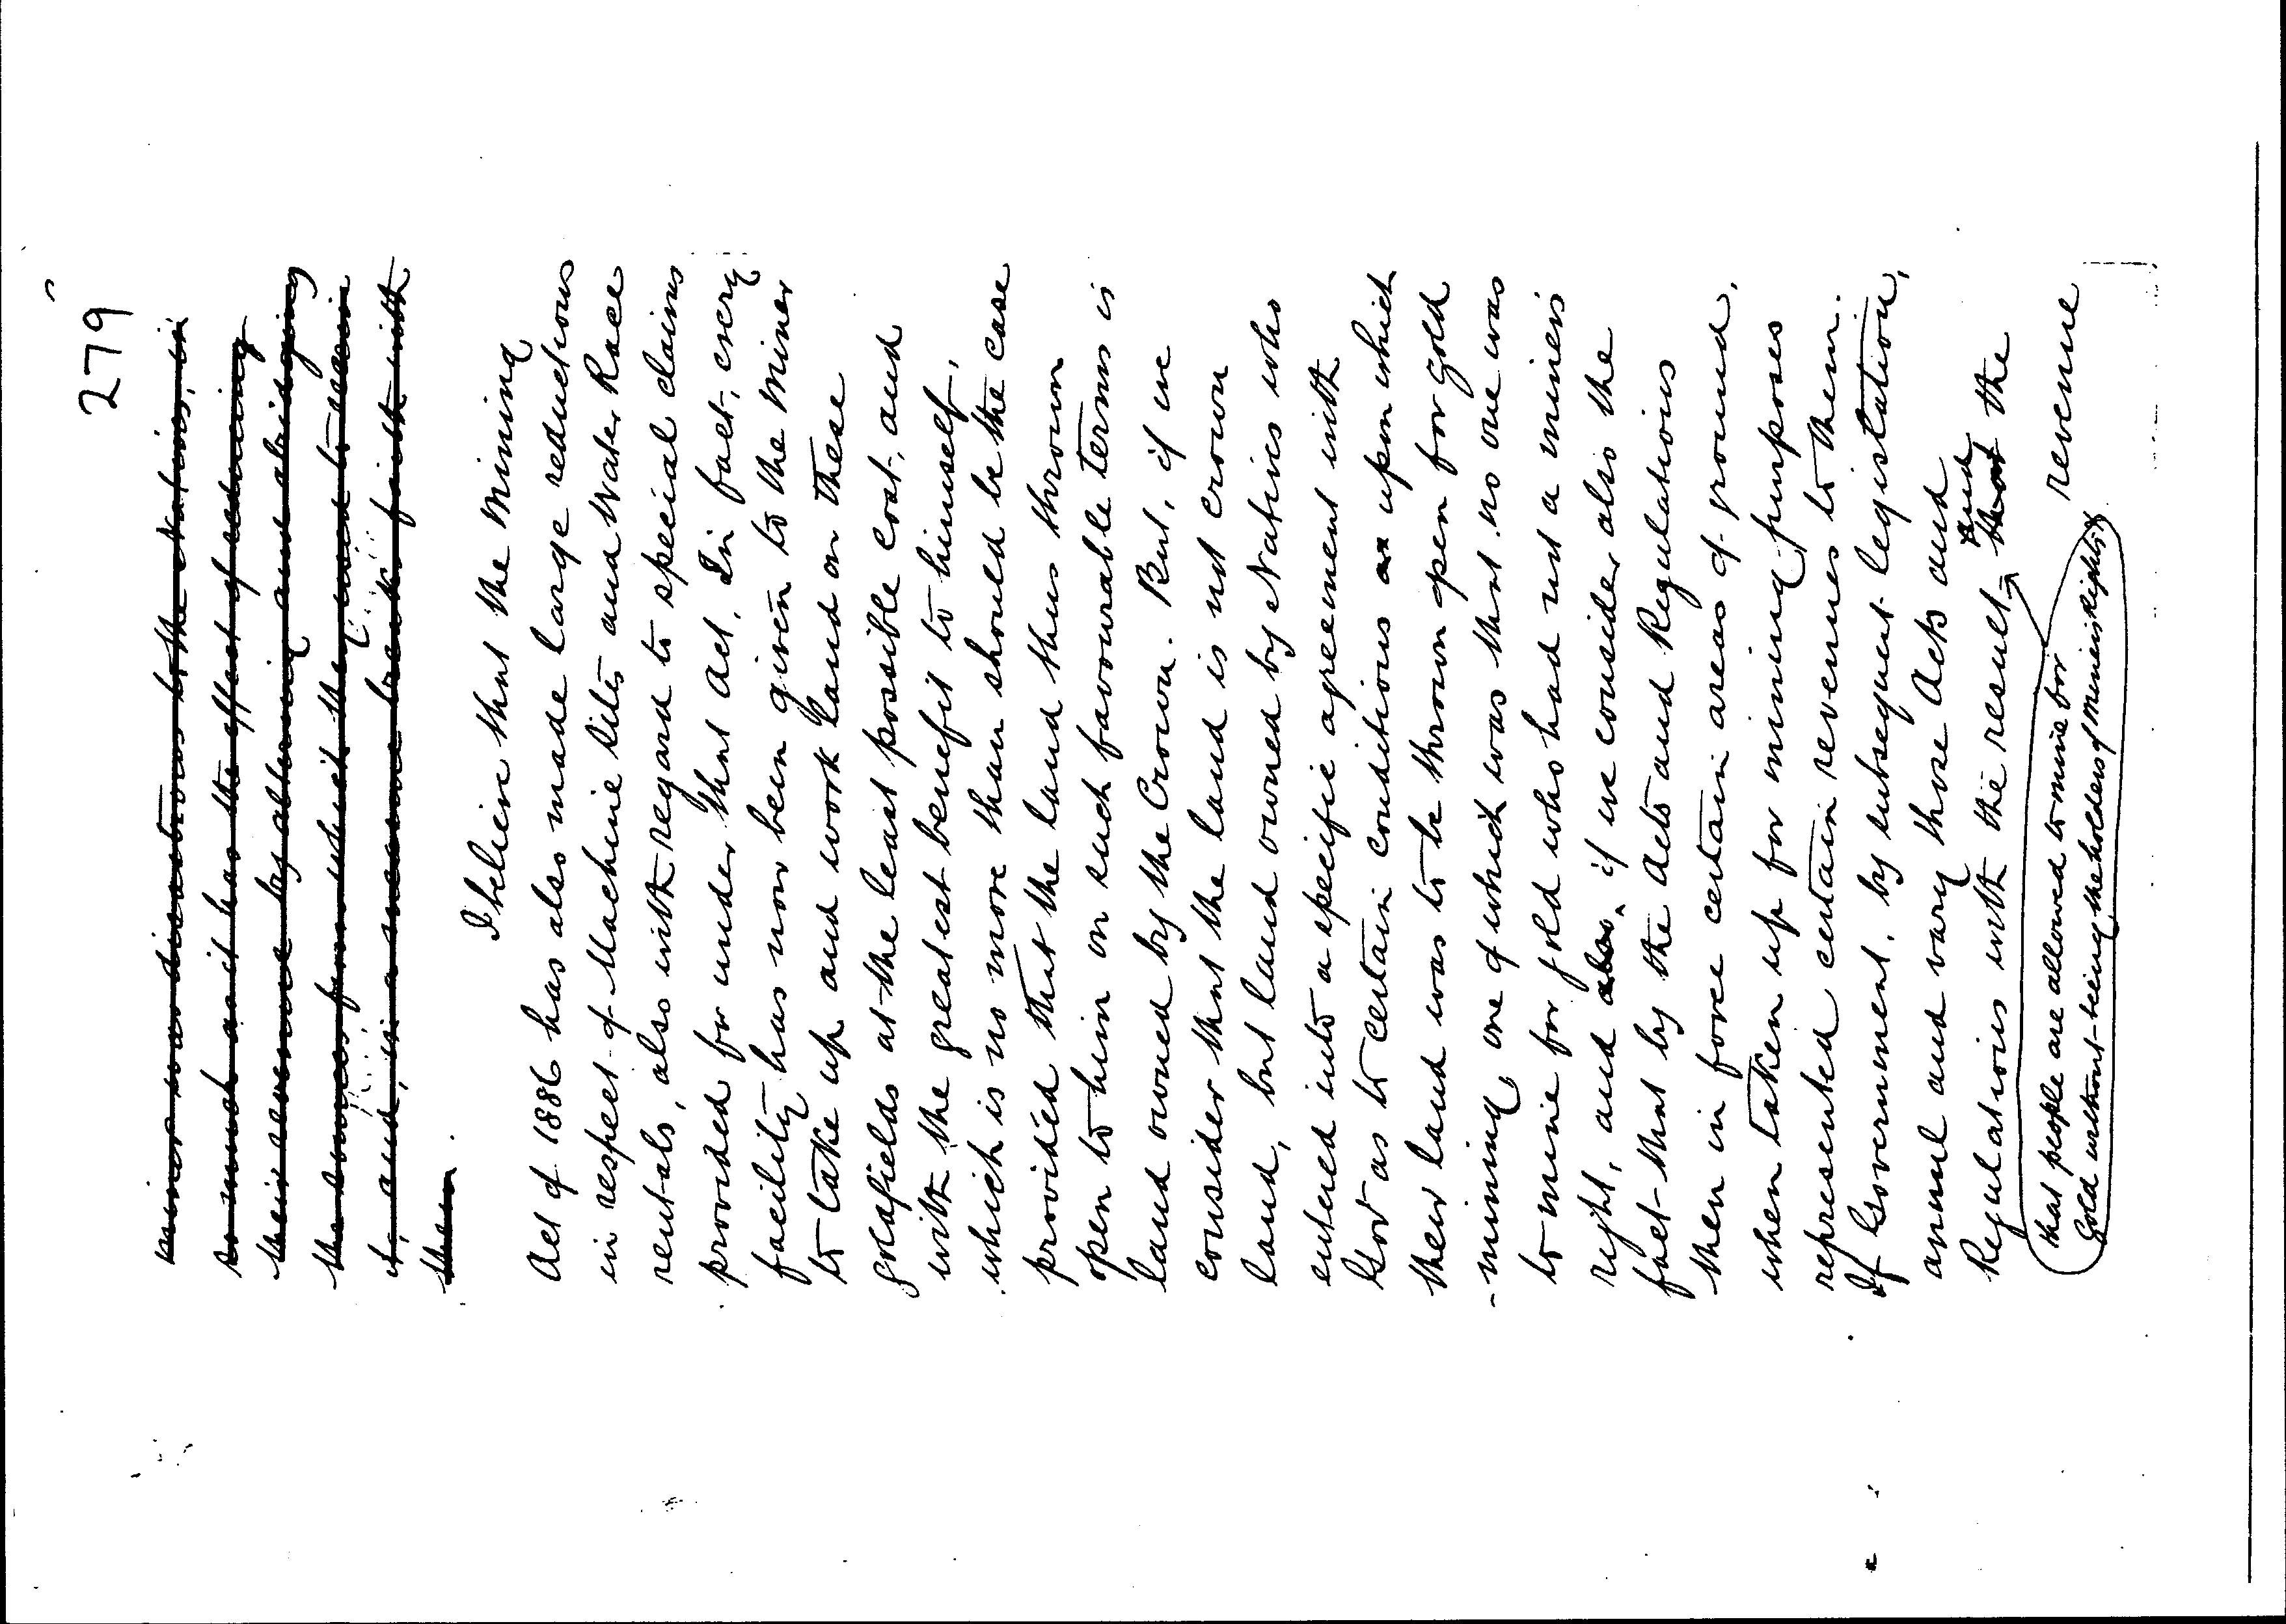 279
minor was disastrous to the Natives, in
so much as it has the effect of reducing
their revenue by altering and abridging
the sources from which they used to receive
it, and, is a measure breach of faith with
them.
I believe that the Mining
Act of 1886 has also made large reductions
in respect of Machine Sites and Water Race
rentals, also with regard to special claims
provided for under that Act. In fact, every
facility has now been given to the Miner
to take up and work land on these
goldfields at the least possible cost, and
with the greatest benefit to himself,
which is no more than should be the case
provided that the land thus thrown
open to him on such favourable terms is
land owned by the Crown. But, if we
consider that the land is not crown
land, but land owned by Natives who
entered into a specific agreement with
Govt as to certain conditions as upon which
their land was to be thrown open for gold
-mining, one of which was that no one was
to mine for gold who had not a miner's
right, and also, if we consider also the
fact that by the Acts and Regulations
then in force certain areas of ground,
when taken up for mining purposes
represented certain revenues to them.
If Government, by subsequent legislation,
annul and vary those Acts and
Regulations with the result, that and the
that people are allowed to mine for
Gold without being the holders of miners rights
revenue